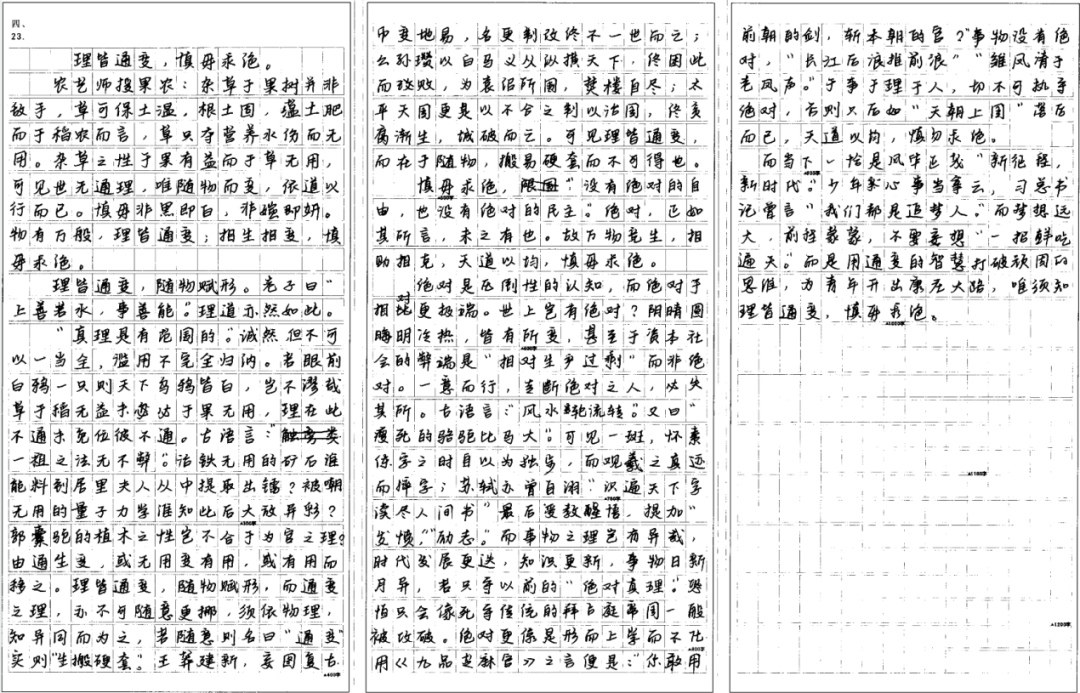 四、
23.
理皆通变，慎毋求绝。
农艺师授果农：杂草于果树并非
敌手，草可保土湿，根土固，蕴土肥
而于稻农而言，草只夺营养水伤而无
用。杂草之性于果有益而于草无用，
可见世无通理，唯随物而变，依道以
行而已。慎毋非黑即白，非媸即妍。
物有万般，理皆通变；相生相变，慎
毋求绝。
理皆通变，随物赋形。老子曰“
上善若水，事善能。”理道亦然如此。
“真理是有范围的。”诚然但不可
以一当全，滥用不完全归纳。若眼前
白鸦一只则天下乌鸦皆白，岂不谬哉
草于稻无益未必达于果无用，理在此
不通未克位彼不通。古语言：“
一祖之法无不弊。”沾铁无用的矿石谁
能料到居里夫人从中提取出镭？被嘲
无用的量子力学谁知此后大放异彩？
郭橐驼的植木之性岂不合于为官之理？
由通生变，或无用变有用，或有用而
移之。理皆通变，随物赋形，而通变
之理，亦不可随意更挪，须依物理，
知异同而为之，若随意则名曰“通变”
实则“生搬硬套”。王莽建新，妄图复古
币变地易，名更制改终不一世而亡；
公孙瓒以白马义从纵横天下，终因此
而致败，为袁绍所围，焚楼自尽；太
平天国更是以不合之制以治国，终亥
腐渐生，城破而亡。可见理皆通变，
而在于随物，搬易硬套而不可得也。
慎毋求绝，“没有绝对的自
由，也没有绝对的民主。”绝对，正如
其所言，未之有也。故万物竞生，相
助相克，天道以均，慎毋求绝。
绝对是压倒性的认知，而绝对于
相对比更极端。世上岂有绝对？阴晴圆
晦明冷热，皆有所变，甚至于资本社
会的弊端是“相对生产过剩”而非绝
对。一意而行，妄断绝对之人，必失
其所。古语言：“风水轮流转。”又曰“
瘦死的骆驼比马大。”可见一斑，怀素
练字之时自以为独步，而观羲之真迹
而惮字；苏轼亦曾自诩“识遍天下字
读尽人间书”最后受教醒悟，提加“
发愤，”励志。”而事物之理岂有异哉，
时代发展更迭，知识更新，事物日新
月异，若只守以前的“绝对真理。”恐
怕只会像死守传统的拜占庭帝国一般
被攻破。绝对更像是形而上学而不化
用《九品芝麻官》之言便是：“你敢用
前朝的剑，斩本朝的官？”事物没有绝
对，“长江后浪推前浪”“雏凤清于
老凤声。”于事于理于人，切不可执守
绝对，否则只后如“天朝上国”落后
而已，天道以均，慎勿求绝。
而当下一恰是风华正茂“新征程，
新时代。”少年心事当拿云，习总书
记曾言“我们都是追梦人。”而梦想远
大，前径蒙蒙，不要妄想“一招鲜吃
遍天。”而是用通变的智慧打破顽固的
思维，为青年开出康庄大路，唯须知
理皆通变，慎毋求绝。